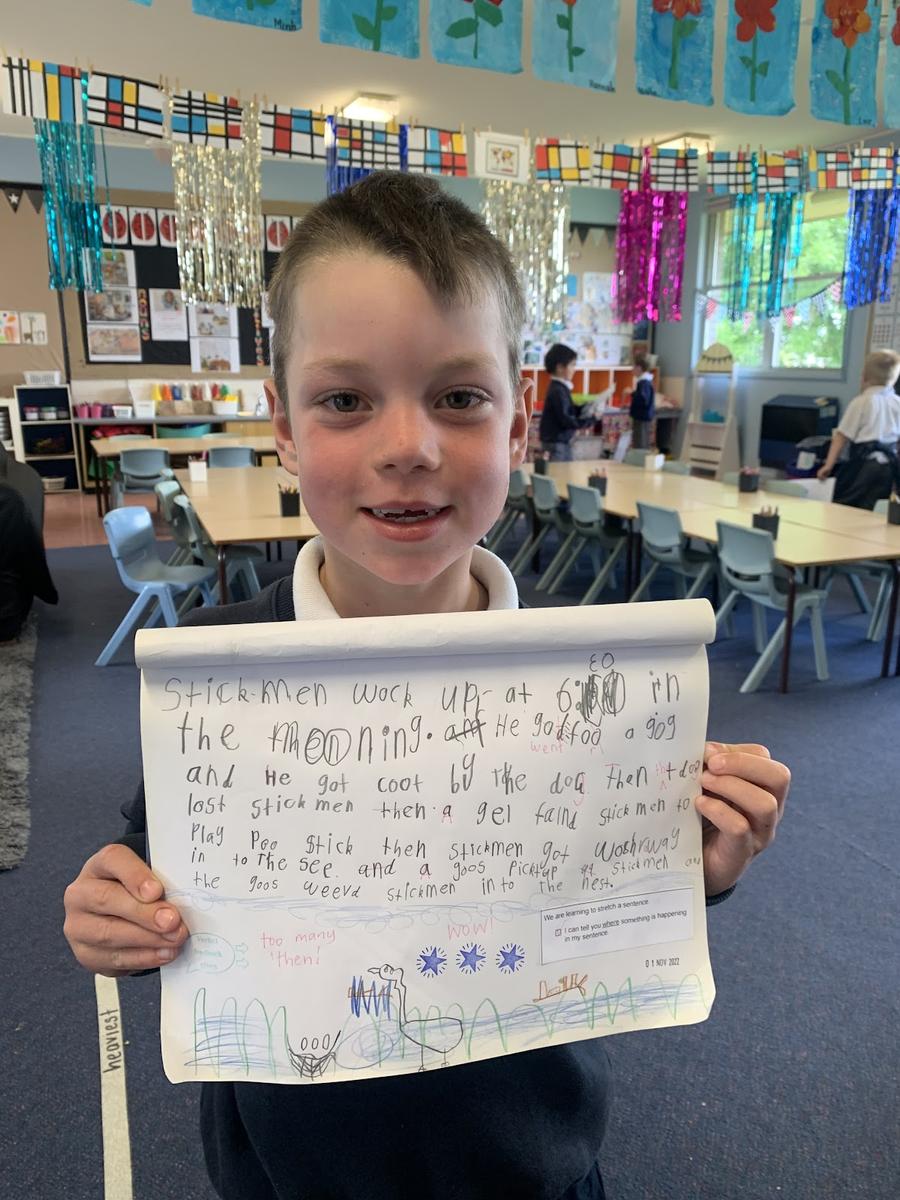 Minh
Hannah
Stickmen wock up at 6:30 in
the monning. He got for a gog
went
and He got coot by the dog Then the t dog
lost stickmen then a gel faind stickmen to
Play Poo stick then stickmen got woshraway
in to the see. and a goos pickt up stickmen and
the goos weevd stickmen in to the nest.
too many
'then!
WOW!
We are learning to stretch a sentence.
I can tell you where something is happening
in my sentence.
01 NOV 2022
heaviest